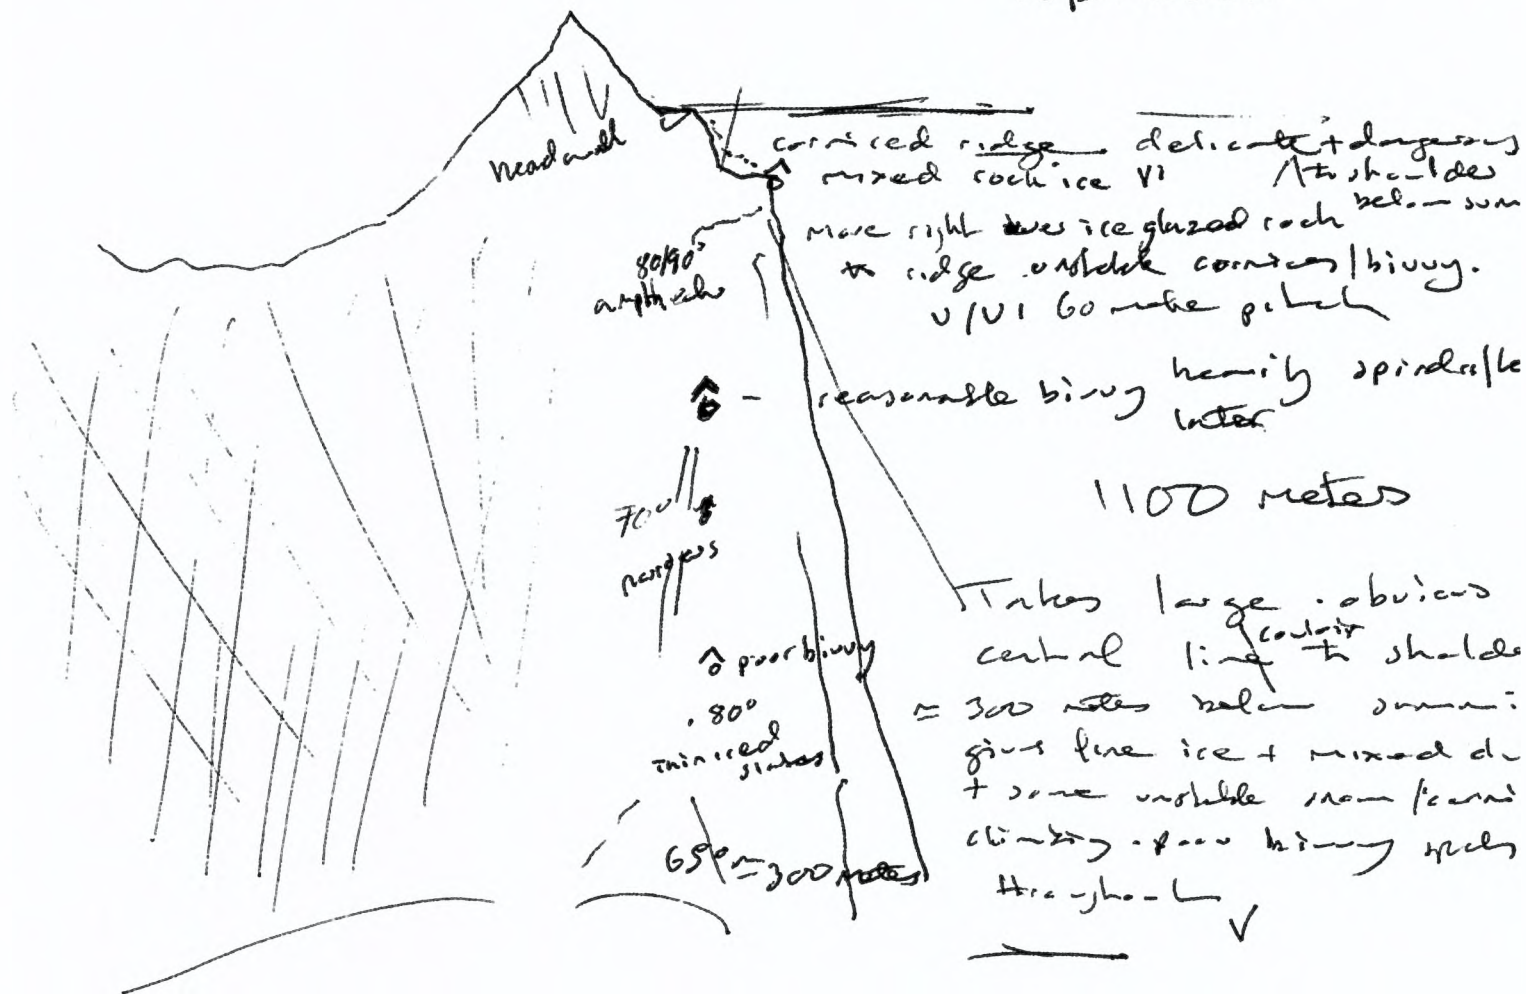 headwall
corniced ridge delicate + dangerous
mixed rock ice VI to shoulder
below sum
move right over ice glazed rock
to ridge unstable cornices/bivvy.
V/VI 60 metre pitch
80/90°
reasonable bivvy heavily
later
1100 meters
70°
narrows
poor bivvy
80°
thin iced
slabs
65° ≈ 300 metres
Takes large obvious
couloir
central line to shoulde
≈ 300 metres below summi
gives fine ice + mixed
+ some unstable snow/corni
climbing poor bivvy
throughout